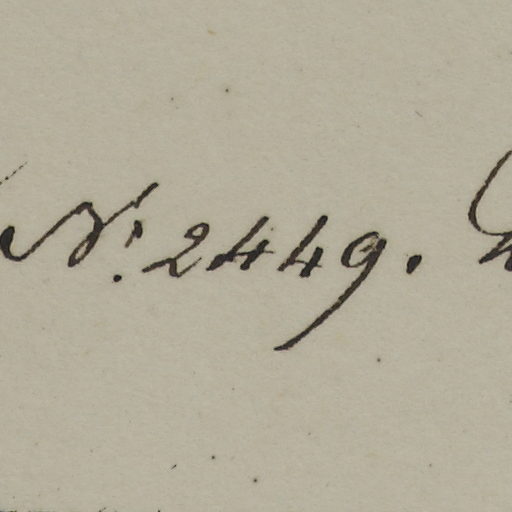 No. 2449.